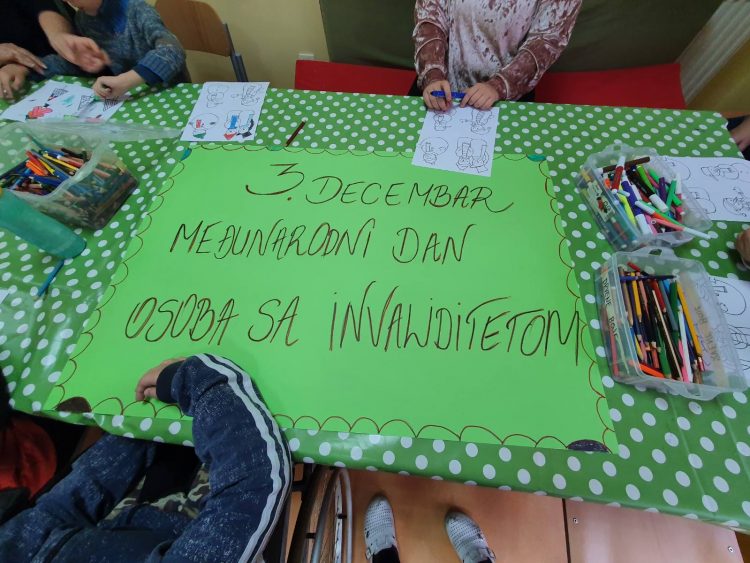 3. DECEMBAR
MEĐUNARODNI DAN
OSOBA SA INVALIDITETOM